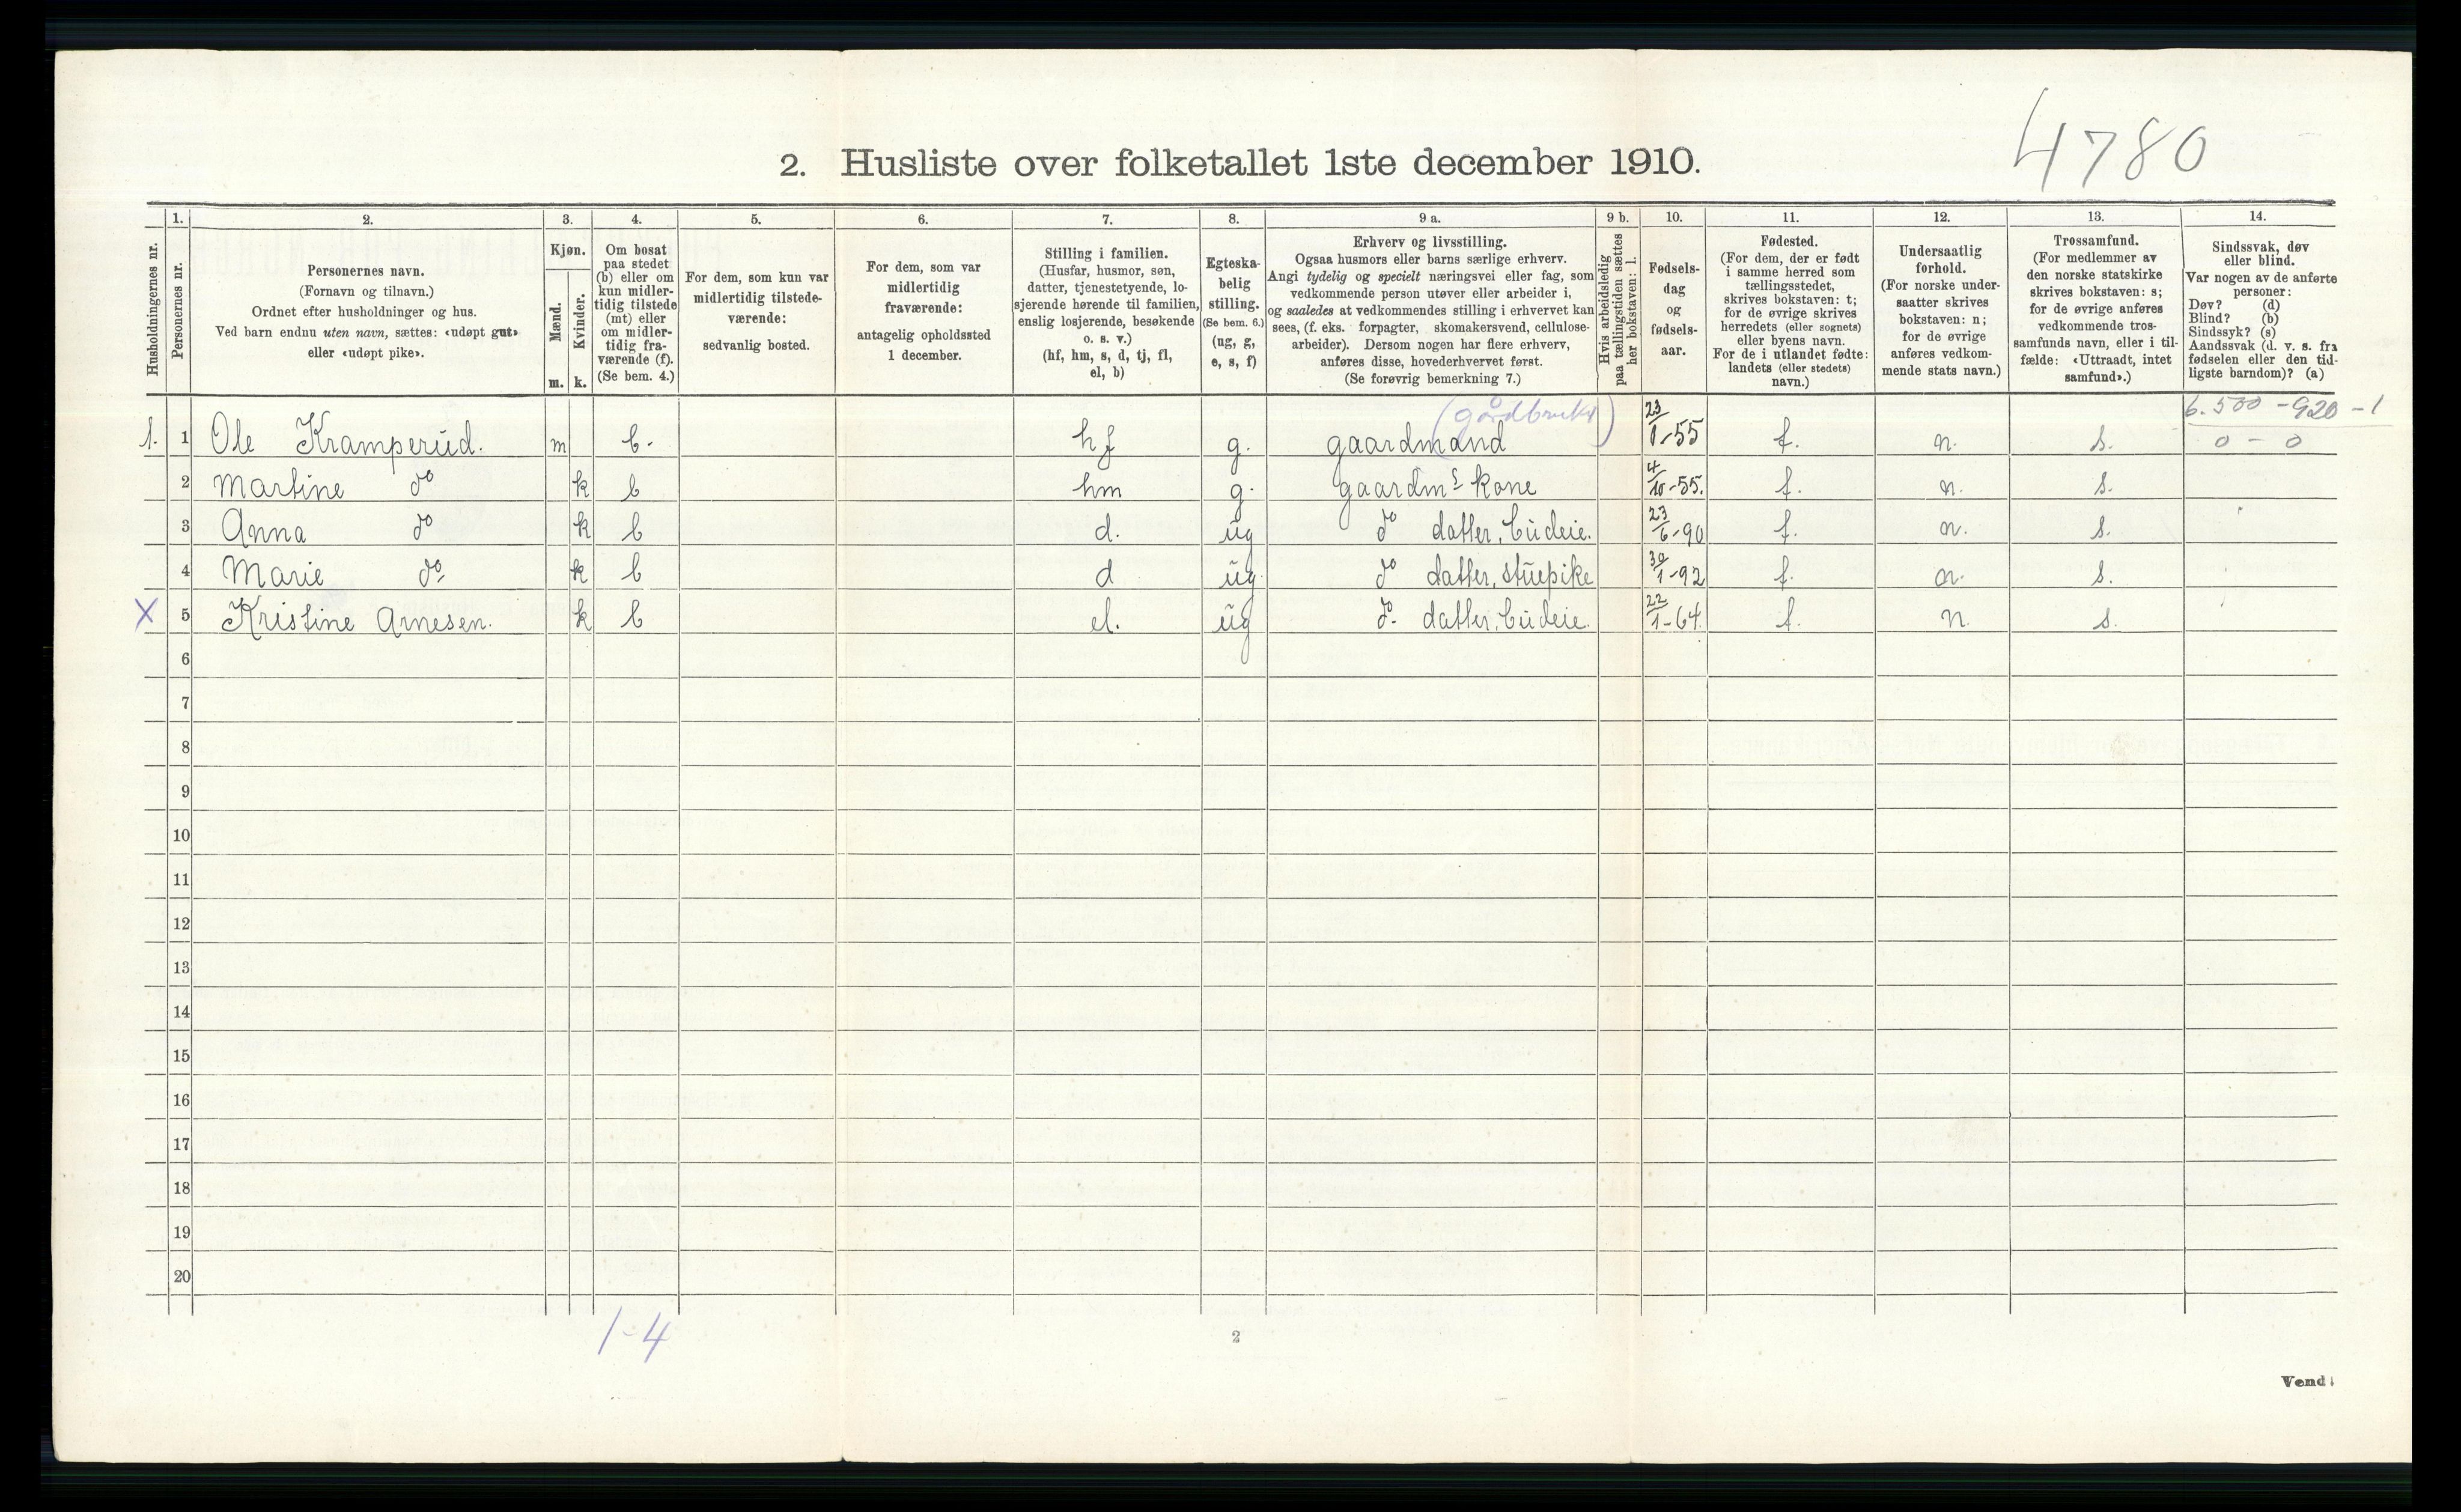 4780
2. Husliste over folketallet 1ste december 1910.
Husholdningernes nr.
1.
Personernes nr.
2.
Personernes navn.
(Fornavn og tilnavn.)
Ordnet efter husholdninger og hus.
Ved barn endnu uten navn, sættes: «udøpt gut»
eller «udøpt pike».
3.
Kjøn.
Mænd.
Kvinder.
m. k.
4.
Om bosat
paa stedet
(b) eller om
kun midler-
tidig tilstede
(mt) eller
om midler-
tidig fra-
værende (f).
(Se bem. 4.)
5.
For dem, som kun var
midlertidig tilstede-
værende:
sedvanlig bosted.
6.
For dem, som var
midlertidig
fraværende:
antagelig opholdssted
1 december.
7.
Stilling i familien.
(Husfar, husmor, søn,
datter, tjenestetyende, lo-
sjerende hørende til familien,
enslig losjerende, besøkende
o. s. v.)
(hf, hm, s, d, tj, fl,
el, b)
8.
Egteska-
belig
stilling.
(Se bem. 6.)
(ug, g,
e, s, f)
9 a.
Erhverv og livsstilling.
Ogsaa husmors eller barns særlige erhverv.
Angi tydelig og specielt næringsvei eller fag, som
vedkommende person utøver eller arbeider i,
og saaledes at vedkommendes stilling i erhvervet kan
sees, (f. eks. forpagter, skomakersvend, cellulose-
arbeider). Dersom nogen har flere erhverv,
anføres disse, hovederhvervet først.
(Se forøvrig bemerkning 7.)
9 b.
Hvis arbeidsledig
paa tællingstiden sættes
her bokstaven: l.
10.
Fødsels-
dag
og
fødsels-
aar.
11.
Fødested.
(For dem, der er født
i samme herred som
tællingsstedet,
skrives bokstaven: t;
for de øvrige skrives
herredets (eller sognets)
eller byens navn.
For de i utlandet fødte:
landets (eller stedets)
navn.)
12.
Undersaatlig
forhold.
(For norske under-
saatter skrives
bokstaven: n;
for de øvrige
anføres vedkom-
mende stats navn.)
13.
Trossamfund.
(For medlemmer av
den norske statskirke
skrives bokstaven: s;
for de øvrige anføres
vedkommende tros-
samfunds navn, eller i til-
fælde: «Uttraadt, intet
samfund».)
14.
Sindssvak, døv
eller blind.
Var nogen av de anførte
personer:
Døv? (d)
Blind? (b)
Sindssyk? (s)
Aandssvak (d. v. s. fra
fødselen eller den tid-
ligste barndom)? (a)
6.500 - 920 - 1
(gårdbruker)
1. 1 Ole Kramperud. m b. hf g. gaardmand 23/1-55 t. n. s. 0 - 0
2 Martine do k b hm g. gaardms kone 4/10-55. t. n. s.
3 Anna do k b d. ug do datter, budeie. 23/6-90 t. n. s.
4 Marie do k b d ug do datter, stuepike 30/1-92 t. n. s.
X 5 Kristine Arnesen. k b el. ug do datter, budeie. 22/1-64. t. n. s.
6
7
8
9
10
11
12
13
14
15
16
17
18
19
20
1-4
2
Vend!